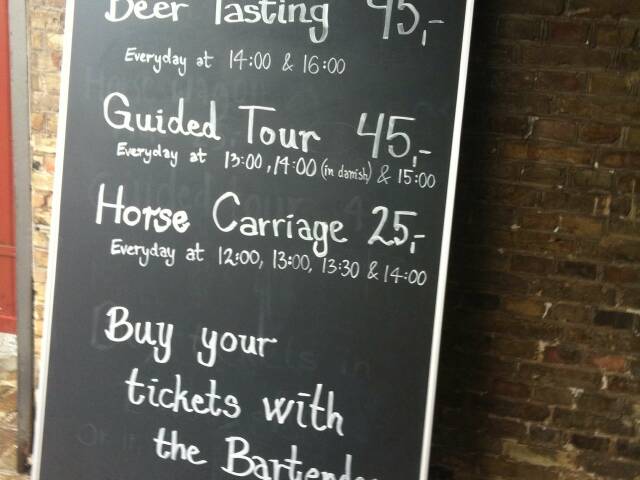 Beer Tasting 45,-
Everyday at 14:00 & 16:00
Guided Tour 45,-
Everyday at 13:00, 14:00 (in danish) & 15:00
Horse Carriage 25,-
Everyday at 12:00, 13:00, 13:30 & 14:00
Buy your
tickets with
the